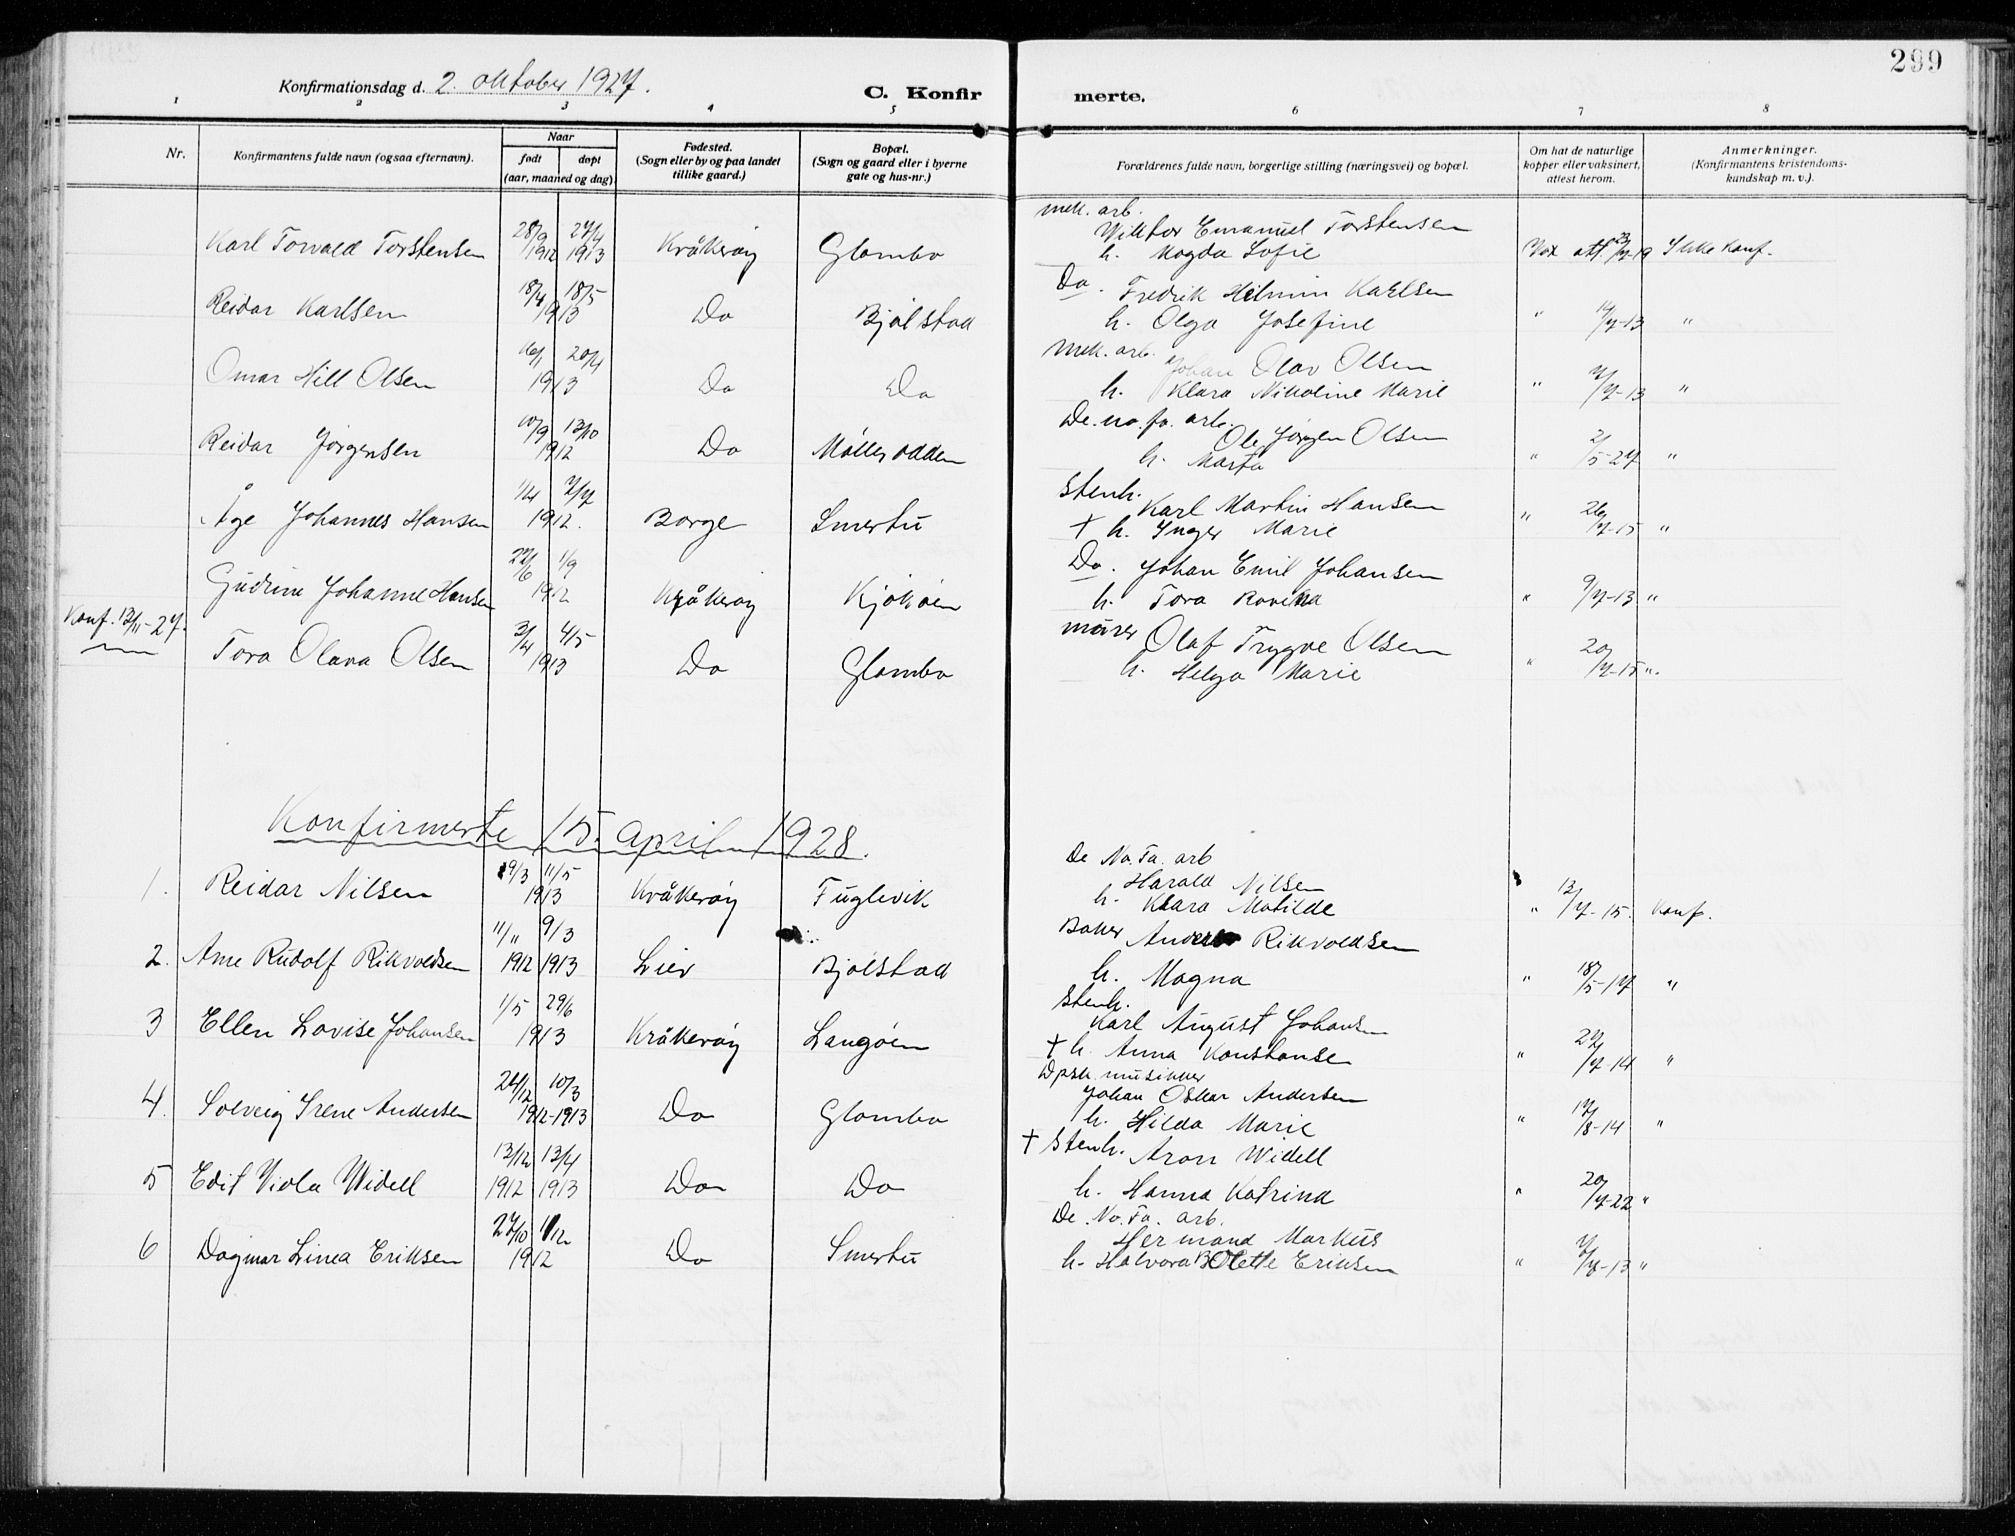 299
Konfirmationsdag d. 2. oktober 1927.
C. Konfir merte.
1 2 3 4 5 6 7 8
Nr.
Konfirmantens fulde navn (ogsaa efternavn).
Naar
født døpt
(aar, maaned og dag)
Fødested.
(Sogn eller by og paa landet
tillike gaard.)
Bopæl.
(Sogn og gaard eller i byerne
gate og hus-nr.)
Forældrenes fulde navn, borgerlige stilling (næringsvei) og bopæl.
Om hat de naturlige
kopper eller vaksinert,
attest herom.
Anmerkninger.
(Konfirmantens kristendoms-
kundskap m. v.).
mek. arb.
28/9 27/4 Wiktor Emanuel Torstensen
Karl Torvald Torstensen 1912 1913 Kråkerøy Glombo h. Magda Sofie Vax att. /7-19 Ikke konf.
18/4 18/5 Do. Fredrik Hilmin Karlsen
Reidar Karlsen 1913 Do Bjølstad h. Olga Josefine " 14/7-13 "
16/1 20/4 mek. arb. Johan Olav Olsen
Omar Hill Olsen 1913 Do Do h. Klara Nikoline Marie " 7/7-13 "
De. no. fa. arb.
10/9 13/10 Ole Jørgen Olsen
Reidar Jørgensen 1912 Do Møllerodden h. Marta " 2/5-27 "
1/4 7/7 Stenh. Karl Martin Hansen
Åge Johannes Hansen 1912. Borge Smertu † h. Inger Marie " 26/7-15 "
27/6 1/9 Do. Johan Emil Johansen
Gudrun Johanne Hansen 1912 Kråkerøy Kjøkøen h. Tora Rovina " 9/7-13 "
Konf. 13/11-27.
3/4 4/5 murer Olaf Trygve Olsen
Tora Olava Olsen 1913 Do Glombo h. Helga Marie " 20/7-15 ".
Konfirmerte 15. april 1928.
De No. Fa. arb
9/3 11/5 Harald Nilsen
1. Reidar Nilsen 1913 Kråkerøy Fuglevik h. Klara Matilde " 13/7-15. Konf.
11/11 9/3 Baker Anders Rikvoldsen
2. Arne Rudolf Rikvoldsen 1912 1913 Lier Bjølstad h. Magna " 18/5-17 "
Stenh.
1/5 29/6 Karl August Johansen
3 Ellen Lovise Johansen 1913 Kråkerøy Langøen † h. Anna Konstanse " 22/7-14 "
Dpsk. musikker
24/12 10/3 Johan Oskar Andersen
4. Solveig Irene Andersen 1912-1913 Do Glombo h. Hilda Marie " 17/8-14 "
13/12 13/4 † Stenh. Aron Widell
5 Edit Viola Widell 1912 1913 Do Do h. Hanna Katrina " 20/7-22 "
De. No. Fa. arb.
27/10 1/12 Hermand Markus
6 Dagmar Linea Eriksen 1912 Do Smertu h. Halvora Bolette Eriksen " 7/7-13 "